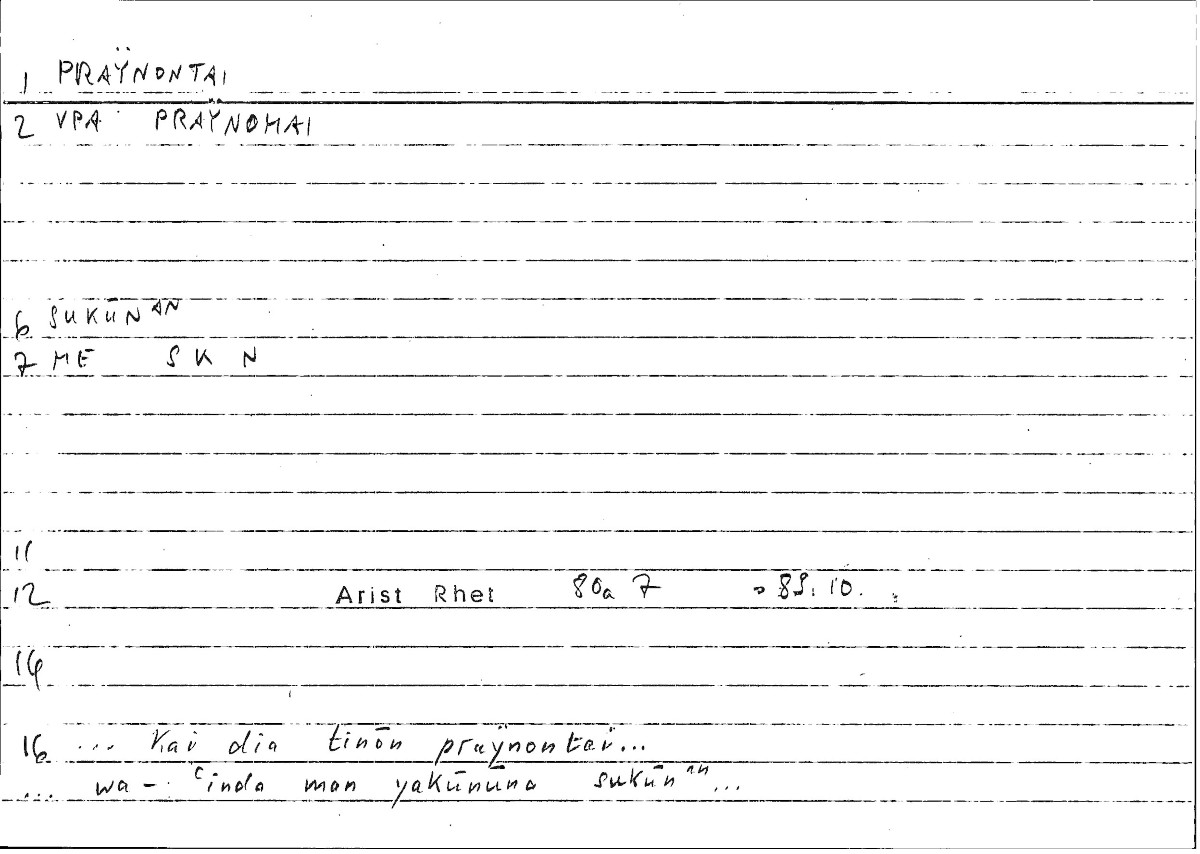 1 PRAŸNONTAI
2 VPA PRAŸNOMAI
6 SUKŪN AN
7 ME S K N
11
12 Arist Rhet 80a 7 83.10.
14
16 ... kai dia tinōn praÿnontai...
... wa- ʿinda man yakūnūna sukūn an...